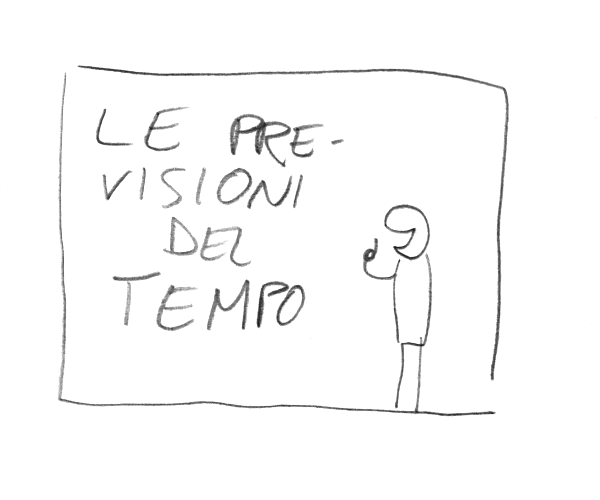 LE PRE-
VISIONI
DEL
TEMPO